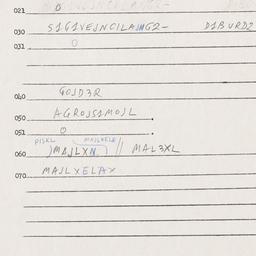 021 0
030 S1G1VEJNCILAJNG2- D1BURD2
031 0
040 GOJD3R
050 AGROJS1MOJL
051 0
PISKL MAJLXELE
060 )MAJLXN // MAL3XL
070 MAJLXELAX